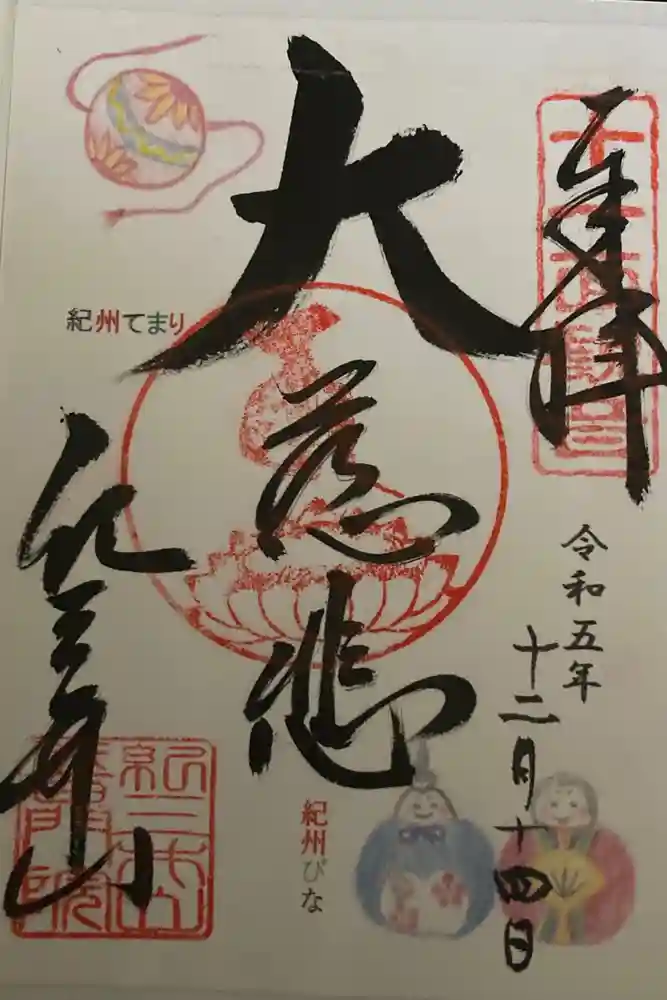 奉拝
令和五年
十二月十四日
大慈悲
紀三井山
紀州てまり
紀州びな
紀三井山
護國院